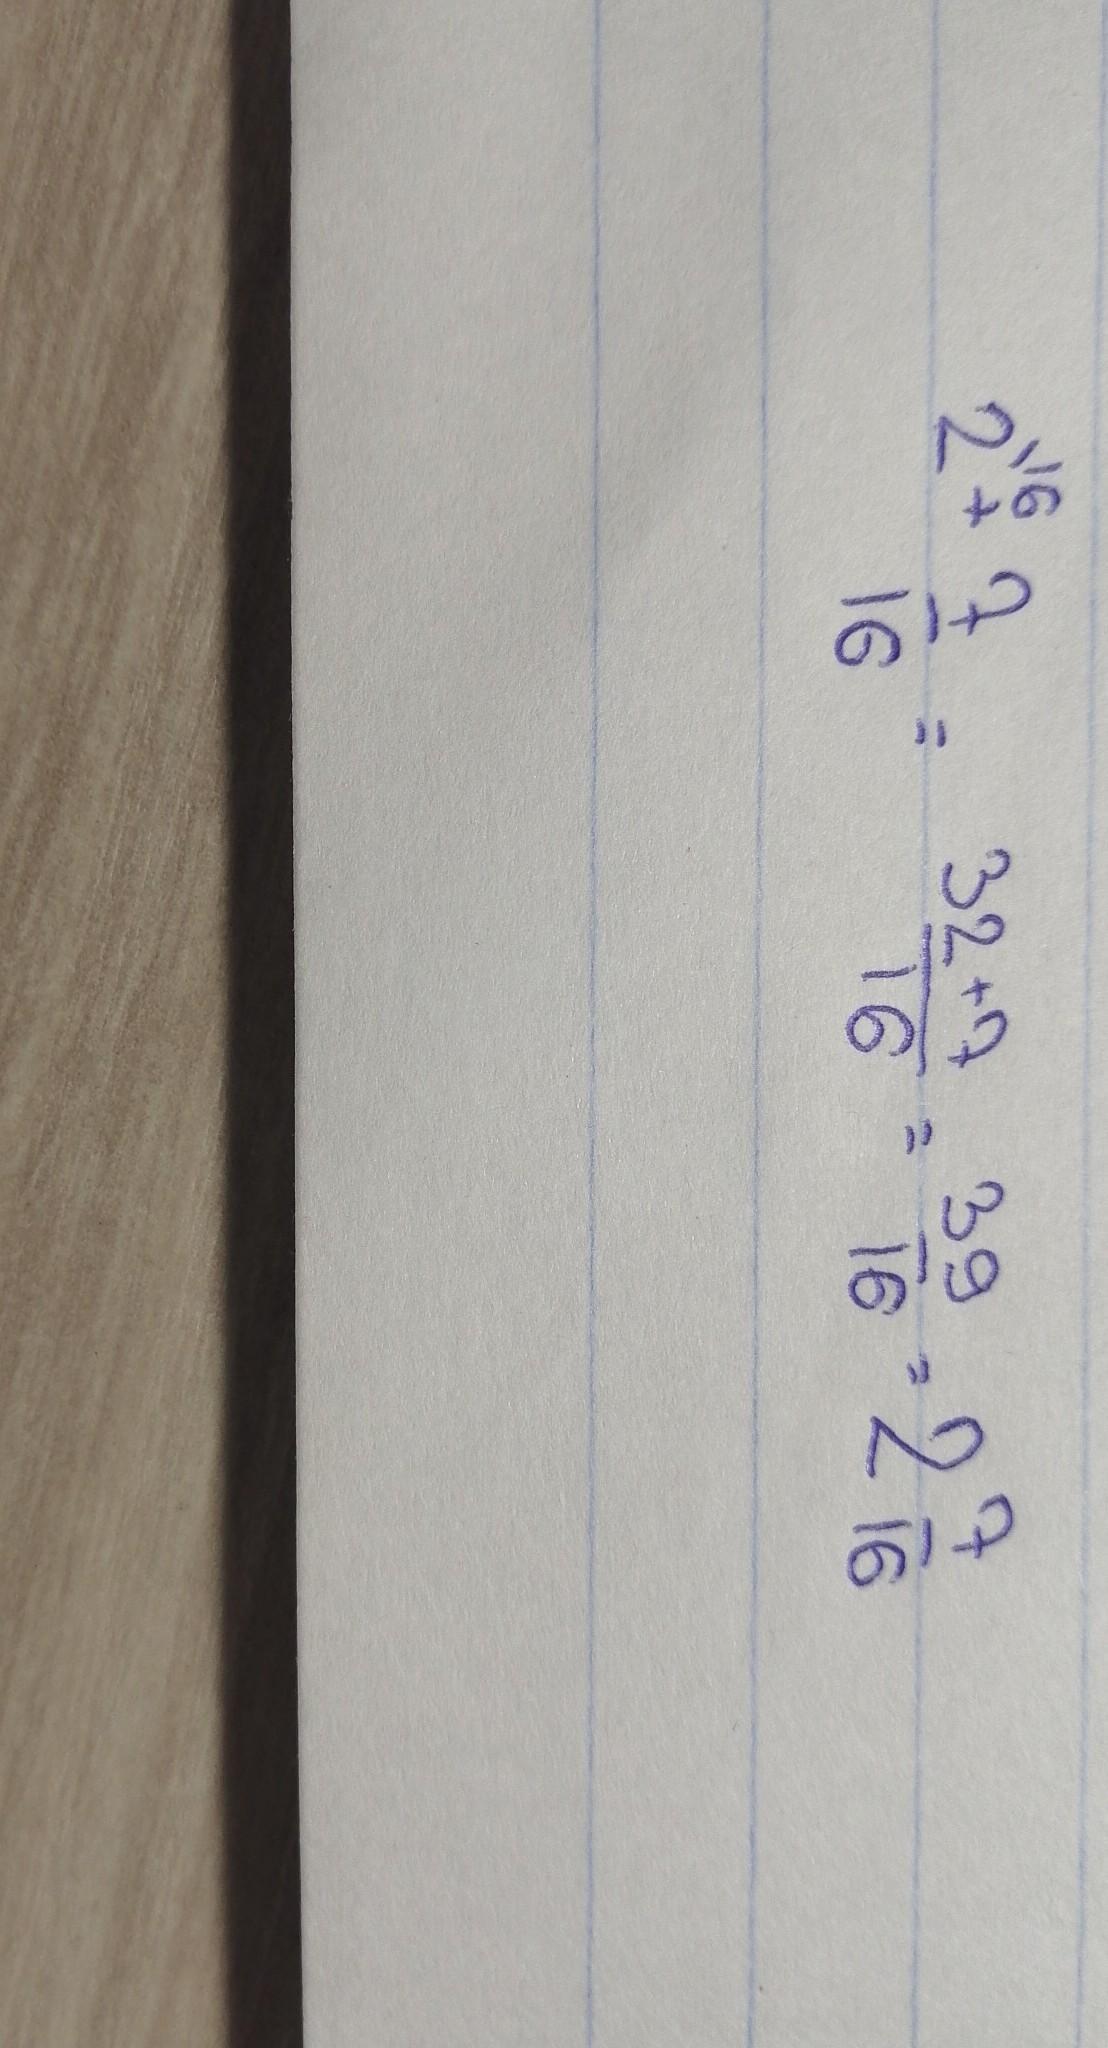 2^{\16} + \frac{7}{16} = \frac{32+7}{16} = \frac{39}{16} = 2\frac{7}{16}